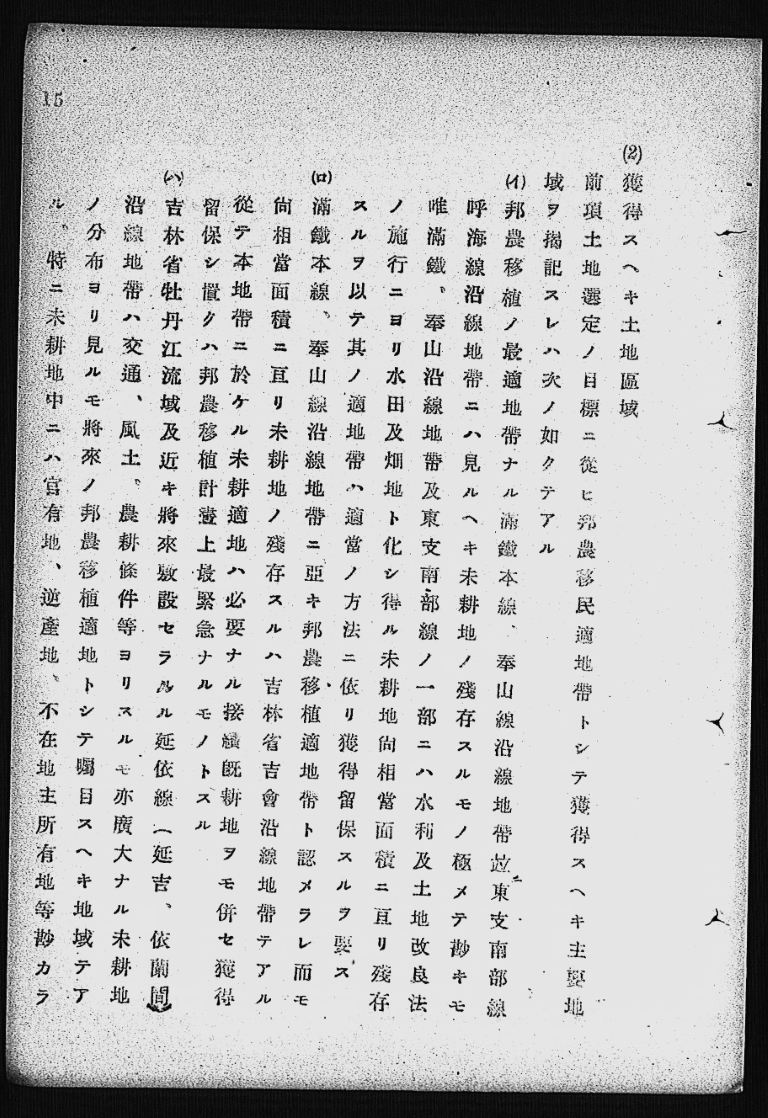 15
(2)獲得スヘキ土地區域
前項土地選定ノ目標ニ從ヒ邦農移民適地帶トシテ獲得スヘキ主要地
域ヲ揭記スレハ次ノ如クテアル
(イ)邦農移植ノ最適地帶ナル滿鐵本線、奉山線沿線地帶竝東支南部線
呼海線沿線地帶ニハ見ルヘキ未耕地ノ殘存スルモノ極メテ尠キモ
唯滿鐵、奉山沿線地帶及東支南部線ノ一部ニハ水利及土地改良法
ノ施行ニヨリ水田及畑地ト化シ得ル未耕地尙相當面積ニ亘リ殘存
スルヲ以テ其ノ適地帶ハ適當ノ方法ニ依リ獲得留保スルヲ要ス
(ロ)滿鐵本線、奉山線沿線地帶ニ亞キ邦農移植適地帶ト認メラレ而モ
尙相當面積ニ亘リ未耕地ノ殘存スルハ吉林省吉會沿線地帶テアル
從テ本地帶ニ於ケル未耕適地ハ必要ナル接續既耕地ヲモ併セ獲得
留保シ置クハ邦農移植計畫上最緊急ナルモノトスル
(ハ)吉林省牡丹江流域及近キ將來敷設セラルル延依線(延吉、依蘭間)
沿線地帶ハ交通、風土、農耕條件等ヨリスルモ亦廣大ナル未耕地
ノ分布ヨリ見ルモ將來ノ邦農移植適地トシテ囑目スヘキ地域テア
ル、特ニ未耕地中ニハ官有地、逆產地、不在地主所有地等尠カラ